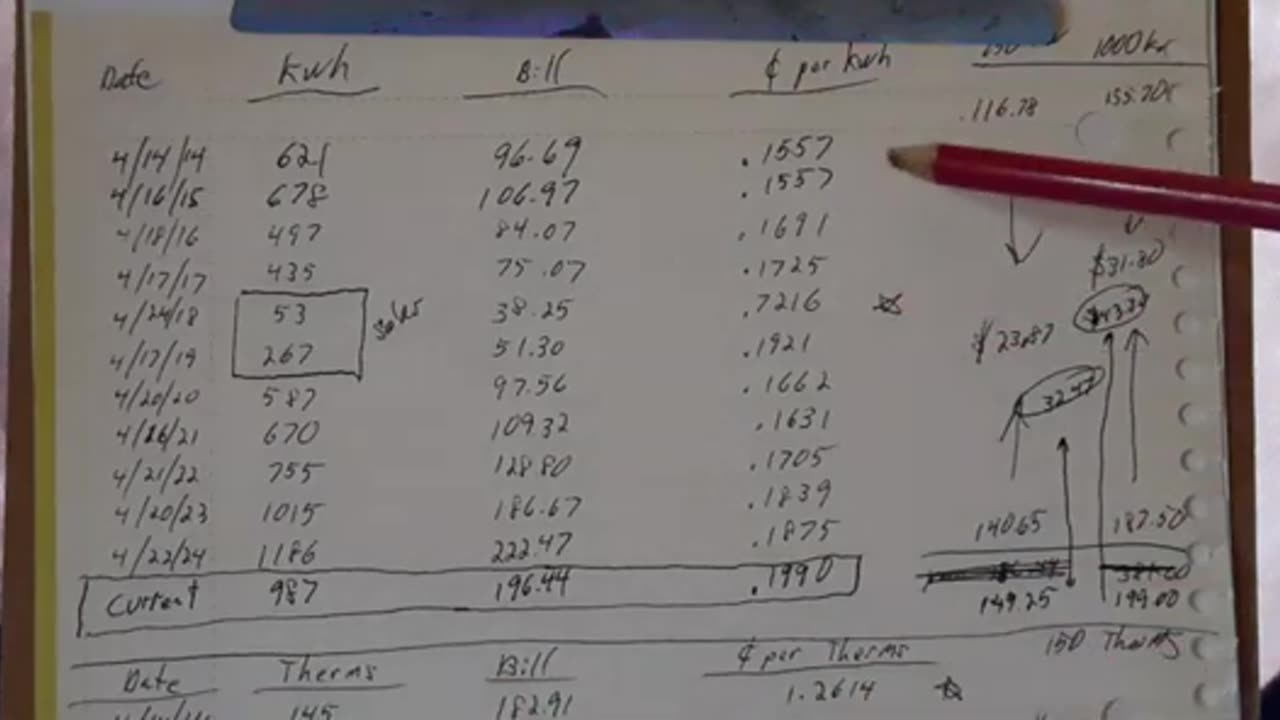 1000 kw
Date Kwh Bill ¢ per kwh
.116.78 155.70
4/14/14 621 96.69 .1557
4/16/15 678 106.97 .1557
4/18/16 497 84.07 .1691
4/17/17 435 75.07 .1725 $31.80
4/24/18 53 38.25 .7216
Solar
4/17/19 267 51.30 .1921 $23.87
4/20/20 587 97.56 .1662 32.47
4/26/21 670 109.32 .1631
4/21/22 755 128.80 .1705
4/20/23 1015 186.67 .1839 140.65 187.50
4/22/24 1186 222.47 .1875
Current 987 196.44 .1990 149.25 199.00
150 Therms
Date Therms Bill ¢ per Therms
145 182.91 1.2614